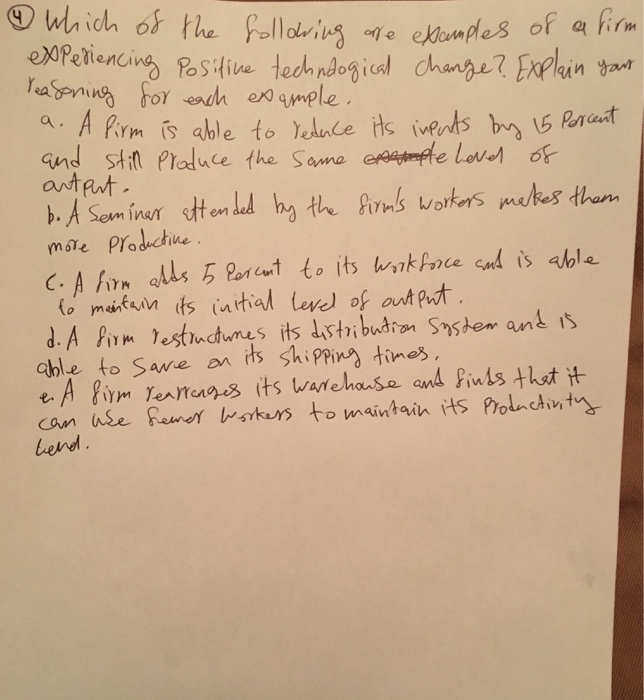 ④ Which of the following are examples of a firm
experiencing Positive technological change? Explain your
reasoning for each example.
a. A firm is able to reduce its inputs by 15 Percent
and still Produce the Same level of
output.
b. A Seminar attended by the firm's workers makes them
more Productive.
C. A firm adds 5 Percent to its workforce and is able
to maintain its initial level of output.
d. A firm restructures its distribution System and is
able to Save on its shipping times.
e. A firm rearranges its warehouse and finds that it
can use fewer workers to maintain its Productivity
level.